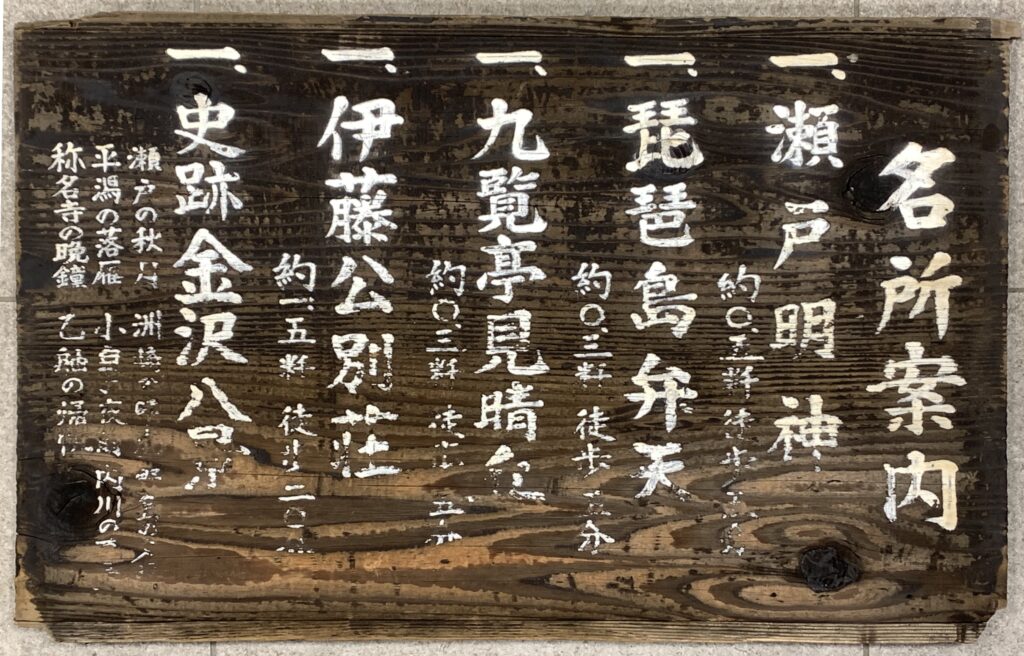 名所案内
一、瀬戸明神
約〇.五粁 徒歩
一、琵琶島弁天
約〇.三粁 徒歩 五分
一、九覧亭見晴台
約〇.三粁 徒歩 五分
一、伊藤公別荘
約一.五粁 徒歩 二〇
一、史跡 金沢八景
瀬戸の秋月 洲
平潟の落雁 小 内川の
称名寺の晩鐘 乙舳の